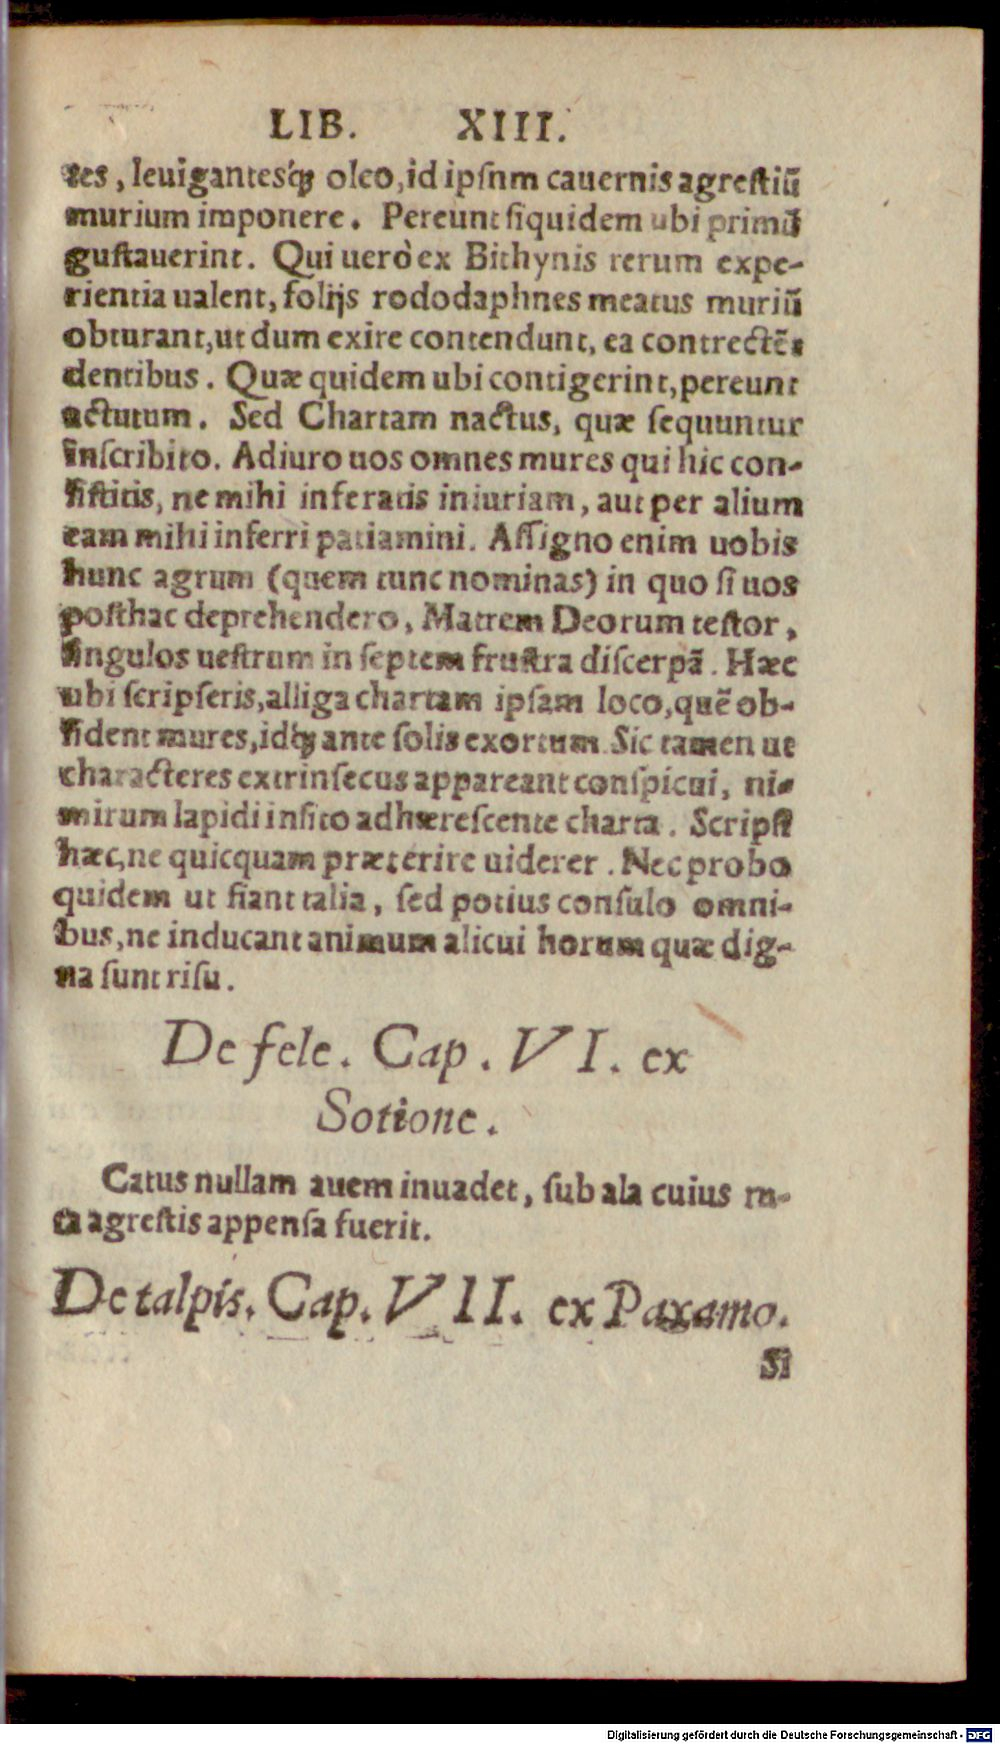 LIB. XIII.
tes, leuigantesq́ꝫ oleo, id ipsnm cauernis agrestiũ
murium imponere. Pereunt siquidem ubi primũ
gustauerint. Qui uerò ex Bithynis rerum expe-
rientia ualent, folijs rododaphnes meatus muriũ
obturant, ut dum exire contendunt, ea contrectẽt
dentibus. Quæ quidem ubi contigerint, pereunt
actutum. Sed Chartam nactus, quæ sequuntur
inscribito. Adiuro uos omnes mures qui hic con-
sistitis, ne mihi inferatis iniuriam, aut per alium
eam mihi inferri patiamini. Assigno enim uobis
hunc agrum (quem tunc nominas) in quo si uos
posthac deprehendero, Matrem Deorum testor,
singulos uestrum in septem frustra discerpã. Hæc
ubi scripseris, alliga chartam ipsam loco, quẽ ob-
sident mures, idq́ꝫ ante solis exortum. Sic tamen ut
characteres extrinsecus appareant conspicui, ni-
mirum lapidi insito adhærescente charta. Scripsi
hæc, ne quicquam præterire uiderer. Nec probo
quidem ut fiant talia, sed potius consulo omni-
bus, ne inducant animum alicui horum quæ dig-
na sunt risu.
De fele. Cap. VI. ex
Sotione.
Catus nullam auem inuadet, sub ala cuius ru-
ta agrestis appensa fuerit.
De talpis. Cap. VII. ex Paxamo.
Si
Digitalisierung gefördert durch die Deutsche Forschungsgemeinschaft - DFG